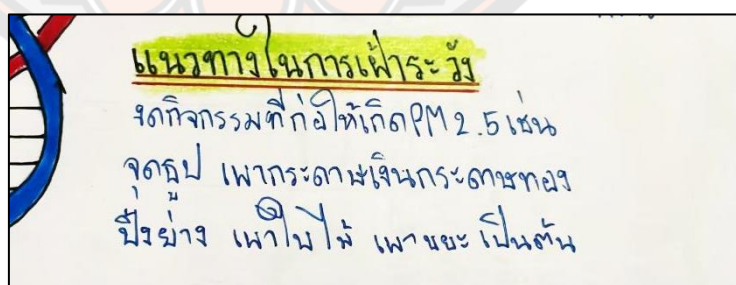 แนวทางในการเฝ้าระวัง
งดกิจกรรมที่ก่อให้เกิดPM 2.5 เช่น
จุดธูป เผากระดาษเงินกระดาษทอง
ปิ้งย่าง เผาใบไม้ เผาขยะ เป็นต้น